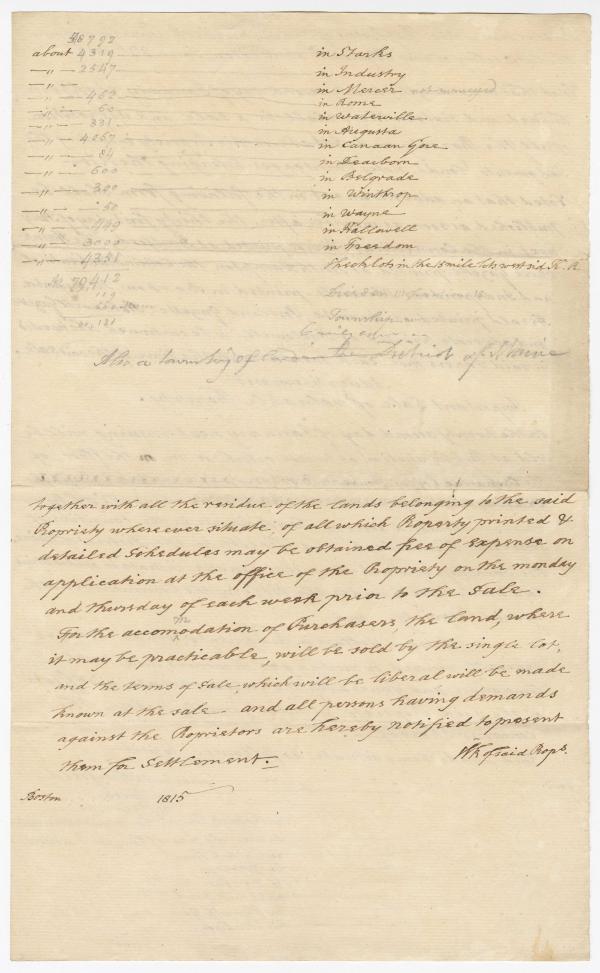 58792
about 4319 in Starks
—〃— 2547 in Industry
—〃— in Mercer
—〃— 462 in Rome
—〃— 60 in Waterville
—〃— 331 in Augusta
—〃— 4057 in Canaan Gore
—〃— 84 in Dearborn
—〃— 600 in Belgrade
—〃— 300 in Winthrop
—〃— 50 in Wayne
—〃— 449 in Hallowell
—〃— 3000 in Freedom
—〃— 4351 in the 15 mile lots west sid K. R.
79,412
Township
Also a township of in the District of Maine
together with all the residue of the lands belonging to the said
Propriety where ever situate, of all which Property printed &
detailed Schedules may be obtained free of expense on
application at the office of the Propriety on the monday
and thursday of each week prior to the Sale.
For the accomodation of Purchasers, the land, where
it may be practicable, will be sold by the single lot,
and the terms of Sale, which will be liberal will be made
known at the sale. and all persons having demands
against the Proprietors are hereby notified to present
them for Settlement.
of said Props.
Boston 1815